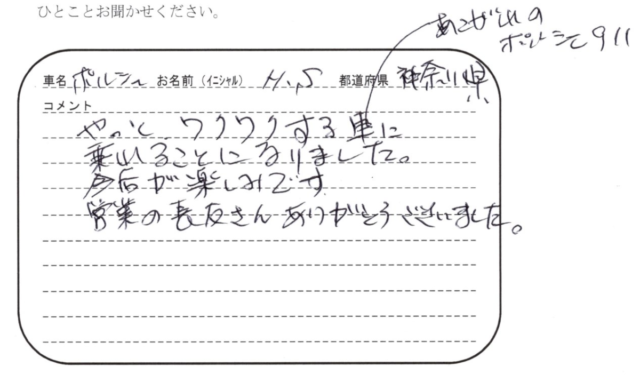 ひとことお聞かせください。
あこがれの
ポルシェ911
車名 ポルシェ お名前（イニシャル） H.S 都道府県 神奈川県
コメント
やっと、ワクワクする車に
乗れることになりました。
今后が楽しみです
営業の長友さんありがとうございました。